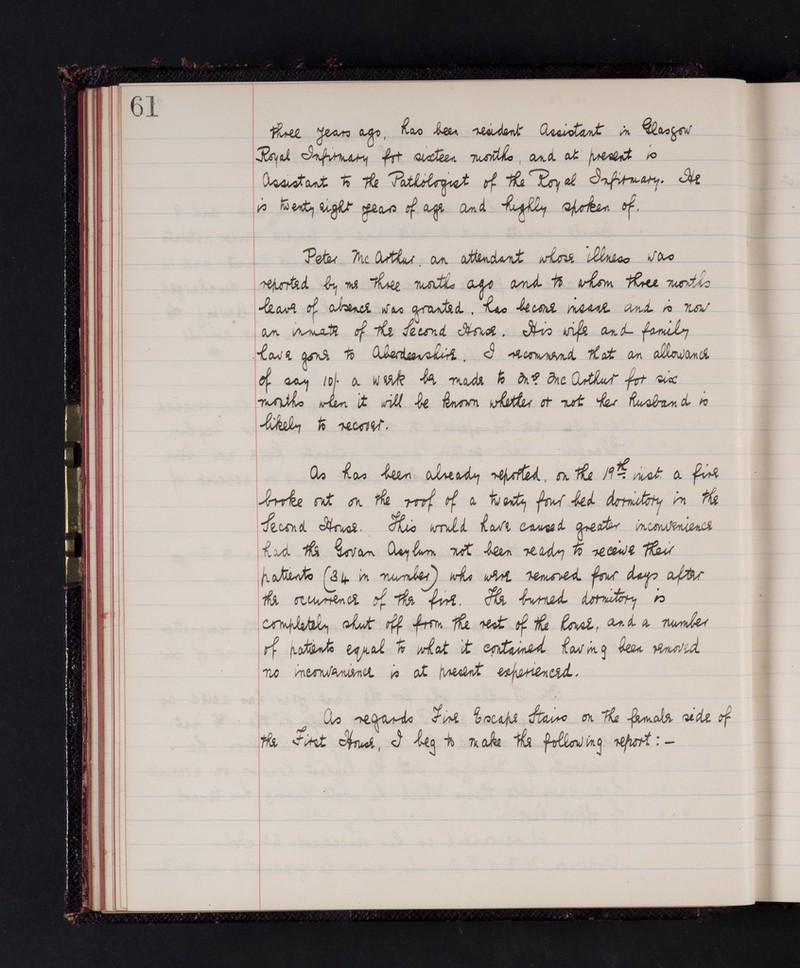 61
three years ago, has been resident Assistant in Glasgow
Royal Infirmary for sixteen months, and at present is
Assistant to the Pathologist of the Royal Infirmary. He
is twenty eight years of age and highly spoken of.
Peter McArthur, an attendant whose illness was
reported by me three months ago and to whom three months
leave of absence was granted, has become insane and is now
an inmate of the Second House. His wife and family
have gone to Aberdeenshire. I recommend that an allowance
of say 10/- a week be made to Mrs McArthur for six
months when it will be known whether or not her husband is
likely to recover.
As has been already reported, on the 19th inst. a fire
broke out on the roof of a twenty four bed dormitory in the
Second House. This would have caused greater inconvenience
had the Govan Asylum not been ready to receive their
patients (34 in number) who were removed four days after
the occurrence of the fire. The burned dormitory is
completely shut off from the rest of the house, and a number
of patients equal to what it contained having been removed
no inconvenience is at present experienced.
As regards Fire Escape Stairs on the female side of
the First House, I beg to make the following report: —